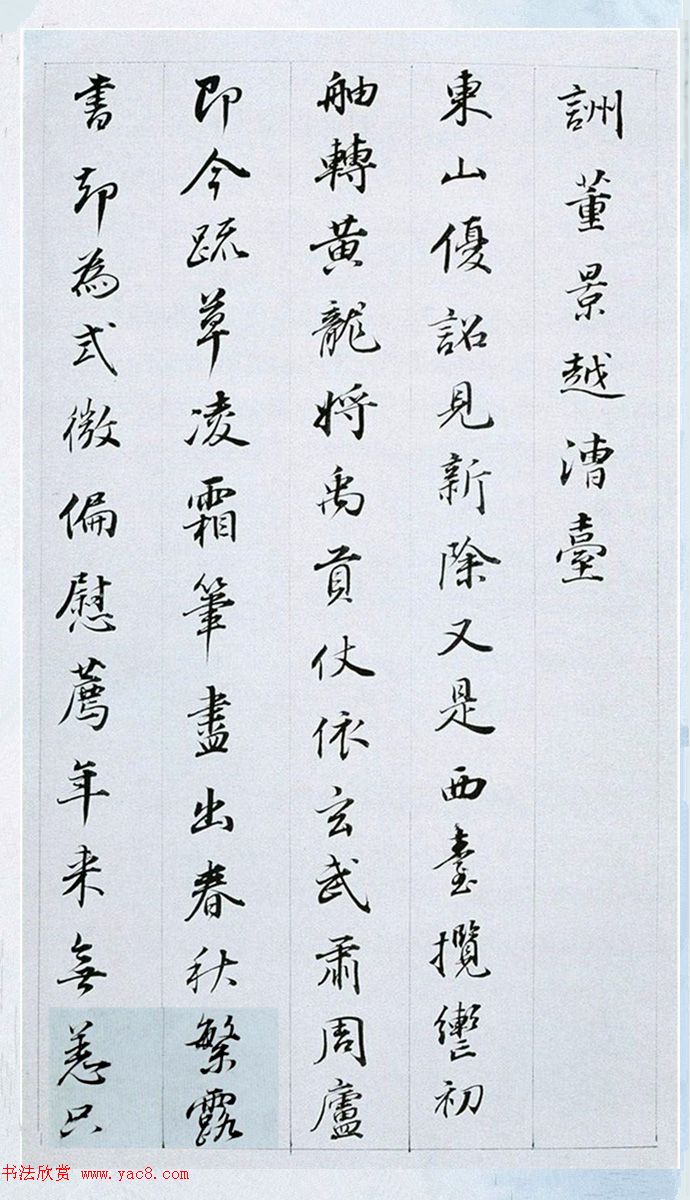 詶董景越漕臺
東山優詔見新除又是西臺攬轡初
舳轉黃龍將禹貢仗依玄武肅周廬
即今疏草凌霜筆盡出春秋繁露
書卻為式微偏慰薦年來無恙只
书法欣赏 www.yac8.com